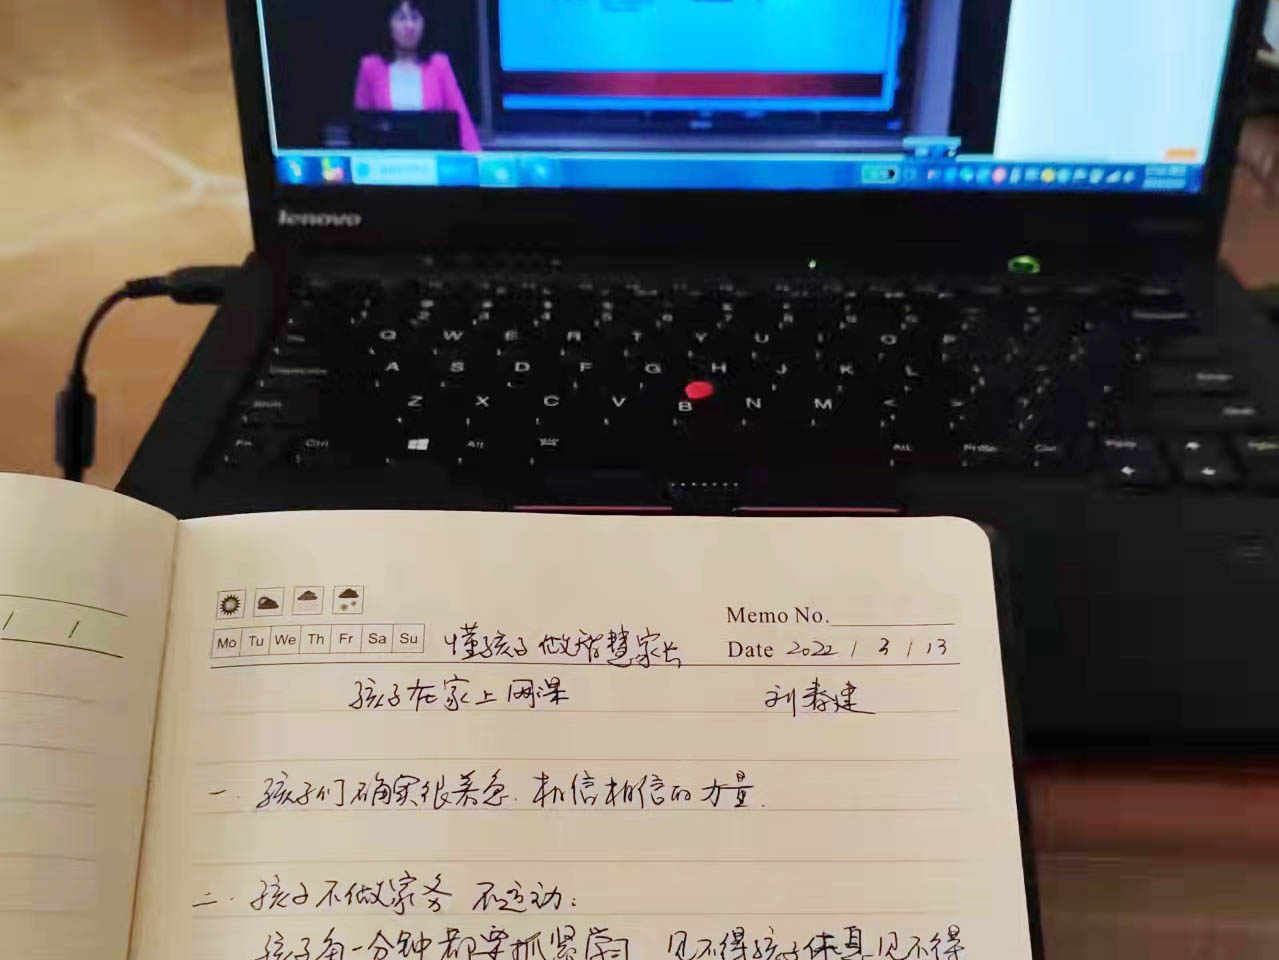 lenovo
Q W E R T Y U I O P
A S D F G H J K L
Z X C V B N M
Fn Ctrl Alt Alt PrtSc
Memo No.
Mo Tu We Th Fr Sa Su
懂孩子 做智慧家长
Date 2022 / 3 / 13
孩子在家上网课
刘春建
一. 孩子们确实很着急. 相信相信的力量.
二. 孩子不做家务 不运动:
孩子每一分钟都要抓紧学习 见不得孩子休息 见不得